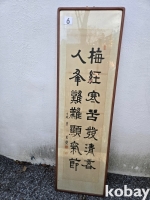 梅經寒苦發清香
人逢艱難顯氣節
kobay